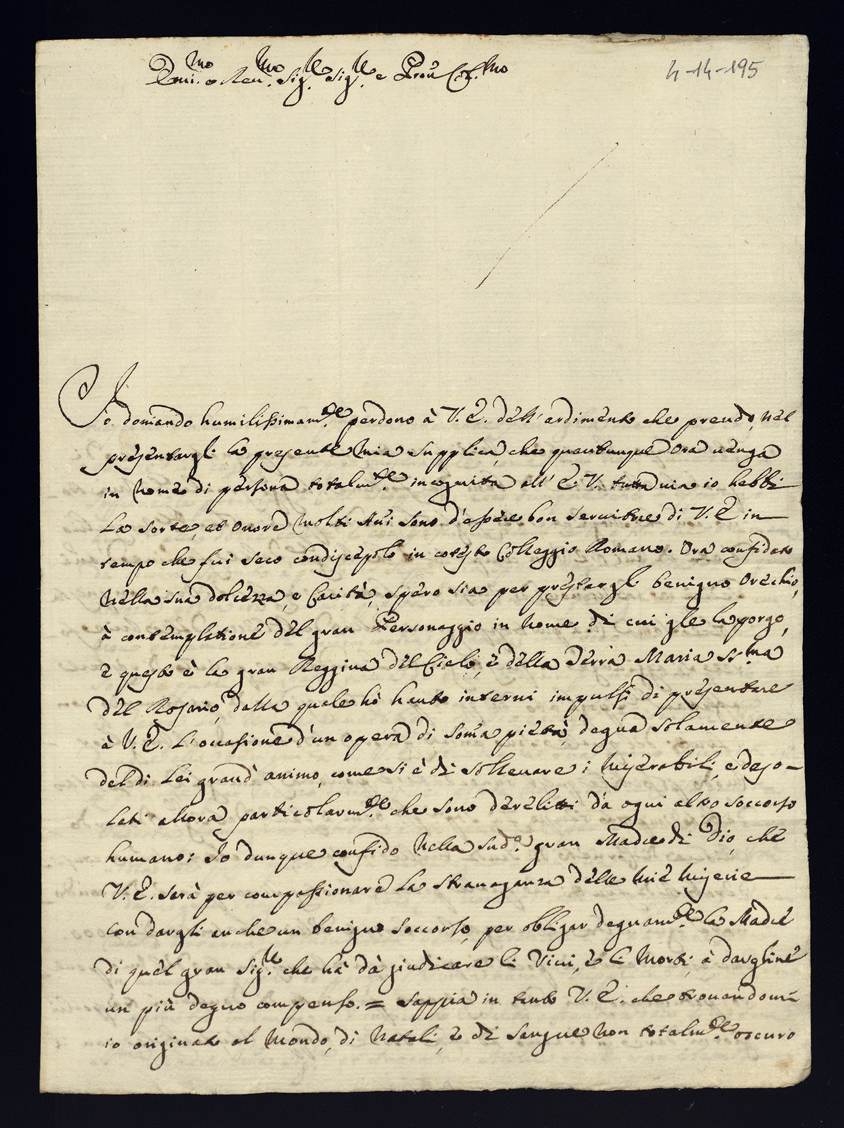 Emi.mo e Reu.mo Sig.re Sig.re e Prōn Col.mo
4-14-195
Io domando humilissimam.te perdono à V. E. dell'ardimento che prendo, nel
presentargli la presente mia supplica, che quantunque ora uenga
in nome di persona totalm.te incognita all'E. V. tutta uia io hebbi
la sorte, et onore molti Ani sono d'essere bon seruitore di V. E in
tempo che fui seco condiscepolo in cotesto Colleggio Romano. Ora confidato
nella sua dolcezza, e Carità, spero sia per prestargli benigno orechio,
à contemplatione del gran Personaggio in nome di cui gle la porgo,
e questo è la gran Reggina del Cielo, e della Terra Maria SS.ma
del Rosario, dalla quale hò hauto interni impulsi di presentare
à V. E. l'occasione d'un opera di soma pietà, degna solamente
del di Lei grand'animo, come si è di solleuare i miserabili, e deso-
lati allora particolarm.te che sono derelitti da ogni altro soccorso
humano: Io dunque confido nella sud.a gran Madre di Dio, che
V. E. sarà per compassionare la strauaganza delle mie miserie
con dargli anche un benigno soccorso, per obligar degnam.te la Madre
di quel gran Sig.re che hà dà giudicare li Viui, e li Morti, à dargline
un più degno compenso. = Sappia in tanto V. E. che trouandomi
io originato al Mondo, di Natali, e di sangue non totalm.te oscuro